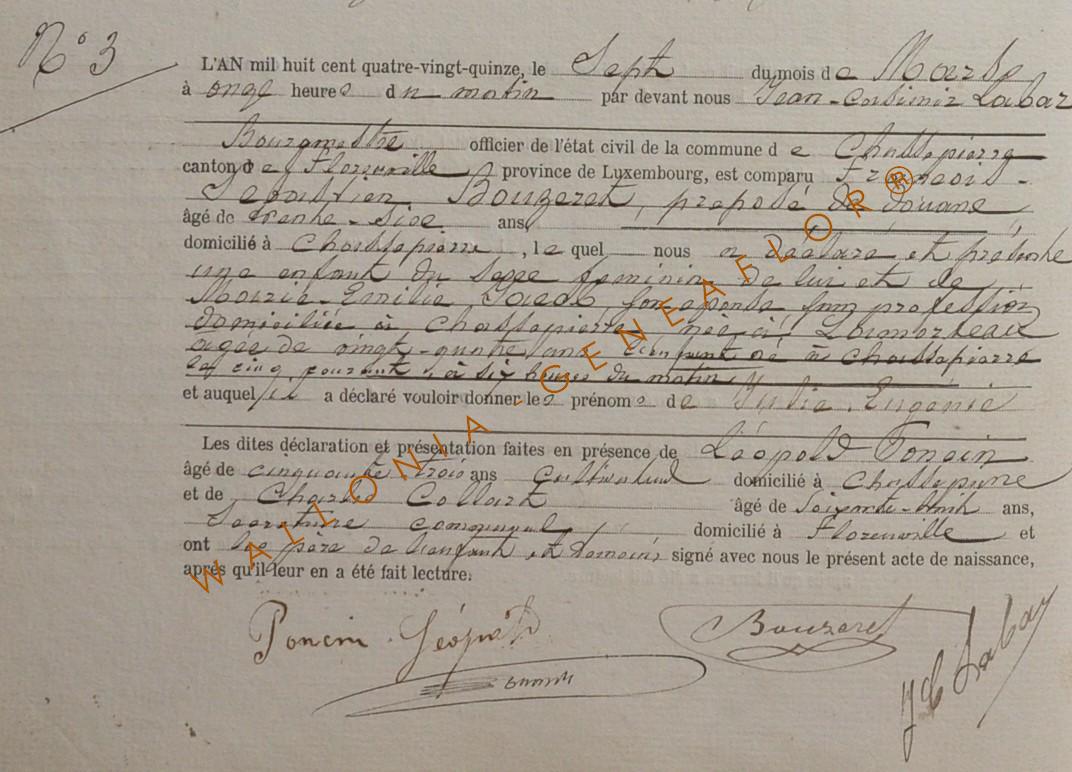 N° 3
L'AN mil huit cent quatre-vingt-quinze, le Sept du mois de Mars
à onze heures du matin par devant nous Jean-Casimir Labar
Bourgmestre officier de l'état civil de la commune de Chassepierre
canton de Florenville, province de Luxembourg, est comparu François-
Sébastien Bouzeret, préposé de douane
âgé de trente-six ans,
domicilié à Chassepierre, lequel nous a déclaré et présenté
une enfant du sexe féminin de lui et de
Marie-Emilie son épouse sans profession
domiciliée à Chassepierre née à
agée de vingt-quatre ans L'enfant né à Chassepierre
le cinq courant, à six heures du matin
et auquel il a déclaré vouloir donner les prénoms de Julie Eugénie
Les dites déclaration et présentation faites en présence de Léopold Poncin
âgé de cinquante trois ans Cultivateur domicilié à Chassepierre
et de Charles Collart âgé de Soixante-huit ans,
Secrétaire communal, domicilié à Florenville et
ont les père de l'enfant et témoins signé avec nous le présent acte de naissance,
après qu'il leur en a été fait lecture.
Poncin Léopold
Bouzeret
J C Labar
WALLONIA-GENEAFLOR®